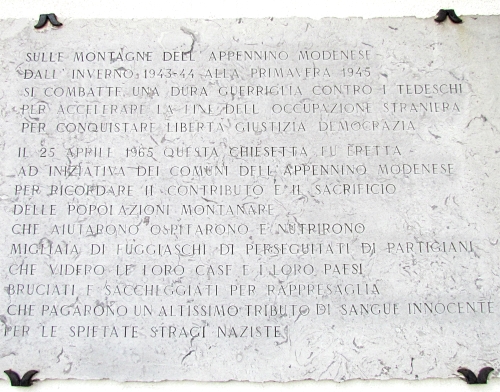 SULLE MONTAGNE DELL' APPENNINO MODENESE
DALL' INVERNO 1943-44 ALLA PRIMAVERA 1945
SI COMBATTE UNA DURA GUERRIGLIA CONTRO I TEDESCHI
PER ACCELERARE LA FINE DELL OCCUPAZIONE STRANIERA
PER CONQUISTARE LIBERTÀ GIUSTIZIA DEMOCRAZIA
IL 25 APRILE 1965 QUESTA CHIESETTA FU ERETTA
AD INIZIATIVA DEI COMUNI DELL'APPENNINO MODENESE
PER RICORDARE IL CONTRIBUTO E IL SACRIFICIO
DELLE POPOLAZIONI MONTANARE
CHE AIUTARONO OSPITARONO E NUTRIRONO
MIGLIAIA DI FUGGIASCHI DI PERSEGUITATI DI PARTIGIANI
CHE VIDERO LE LORO CASE E I LORO PAESI
BRUCIATI E SACCHEGGIATI PER RAPPRESAGLIA
CHE PAGARONO UN ALTISSIMO TRIBUTO DI SANGUE INNOCENTE
PER LE SPIETATE STRAGI NAZISTE